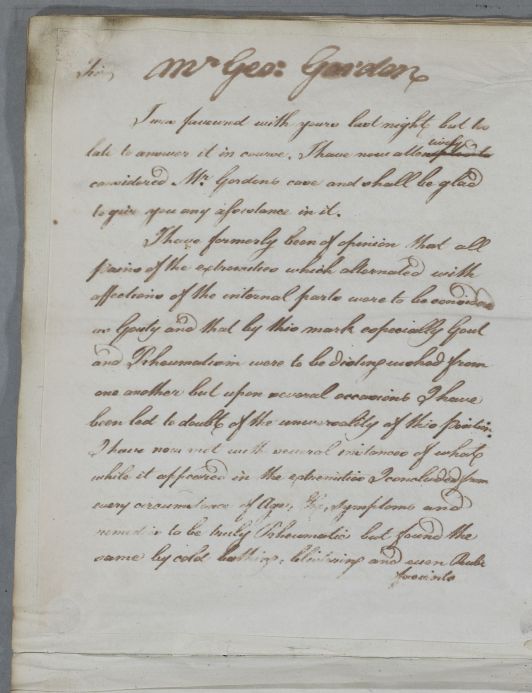 Sir, Mr. Geo: Gordon
I was favoured with yours last night but too
late to answer it in course. I have now attentively
considered Mr. Gordons case and shall be glad
to give you any assistance in it.
I have formerly been of opinion that all
pains of the extremities which alternated with
affections of the internal parts were to be considered
as Gouty and that by this mark especially Gout
and Rheumatism were to be distinguished from
one another but upon several occasions I have
been led to doubt of the universality of this position.
I have now met with several instances of what
while it appeared in the extremities I concluded from
every circumstance of Age, &c, symptoms and
remedies to be truly Rheumatic but found the
same by cold bathing, blistering and even Rube
facients